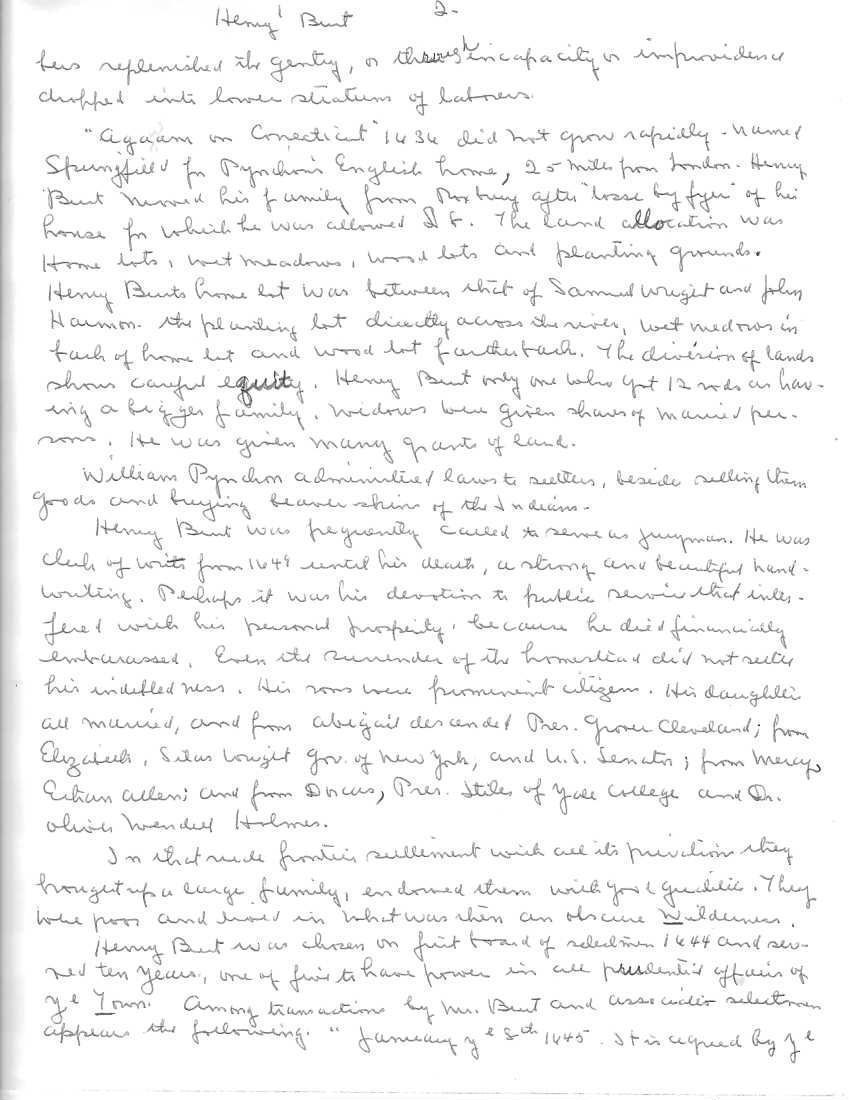 Henry¹ Burt 2-
bers replenished the gentry, or through incapacity or improvidence
dropped into lower stratums of laborers.
"Agaam on Conecticut" 1636 did not grow rapidly - named
Springfield for Pynchon's English home, 25 miles from London. Henry
Burt moved his family from Roxbury after "losse by fyer" of his
house for which he was allowed £8. The land allocation was
Home lots, wet meadows, wood lots and planting grounds.
Henry Burts home lot was between that of Samuel Wright and John
Harmon. the planting lot directly across the river, wet medows in
back of home lot and wood lot farther back. The division of lands
shows careful equity. Henry Burt only one who got 12 rods as hav-
ing a bigger family. Widows were given shares of married per-
sons. He was given many grants of land.
William Pynchon administered laws to settlers, beside selling them
goods and buying beaver skins of the Indians.
Henry Burt was frequently called to serve as juryman. He was
clerk of writs from 1649 until his death, a strong and beautiful hand-
writing. Perhaps it was his devotion to public service that inter-
fered with his personal prosperity, because he died financially
embarassed. Even the surrender of the homestead did not settle
his indebtedness. His sons were prominent citizens. His daughters
all married, and from Abigail descended Pres. Grover Cleveland; from
Elizabeth, Silas Wright Gov. of New York, and U.S. Senator; from Mercy,
Ethan Allen; and from Dorcas, Pres. Stiles of Yale College and Dr.
Oliver Wendell Holmes.
In that rude frontier settlement with all its privations they
brought up a large family, endowed them with good qualities. They
were poor and lived in what was then an obscure Wilderness.
Henry Burt was chosen on first board of selectmen 1644 and ser-
ved ten years, one of five to have power in all prudential affairs of
ye Town. Among transactions by Mr. Burt and associate selectmen
appears the following. " January ye 8th 1645. It is agreed by ye